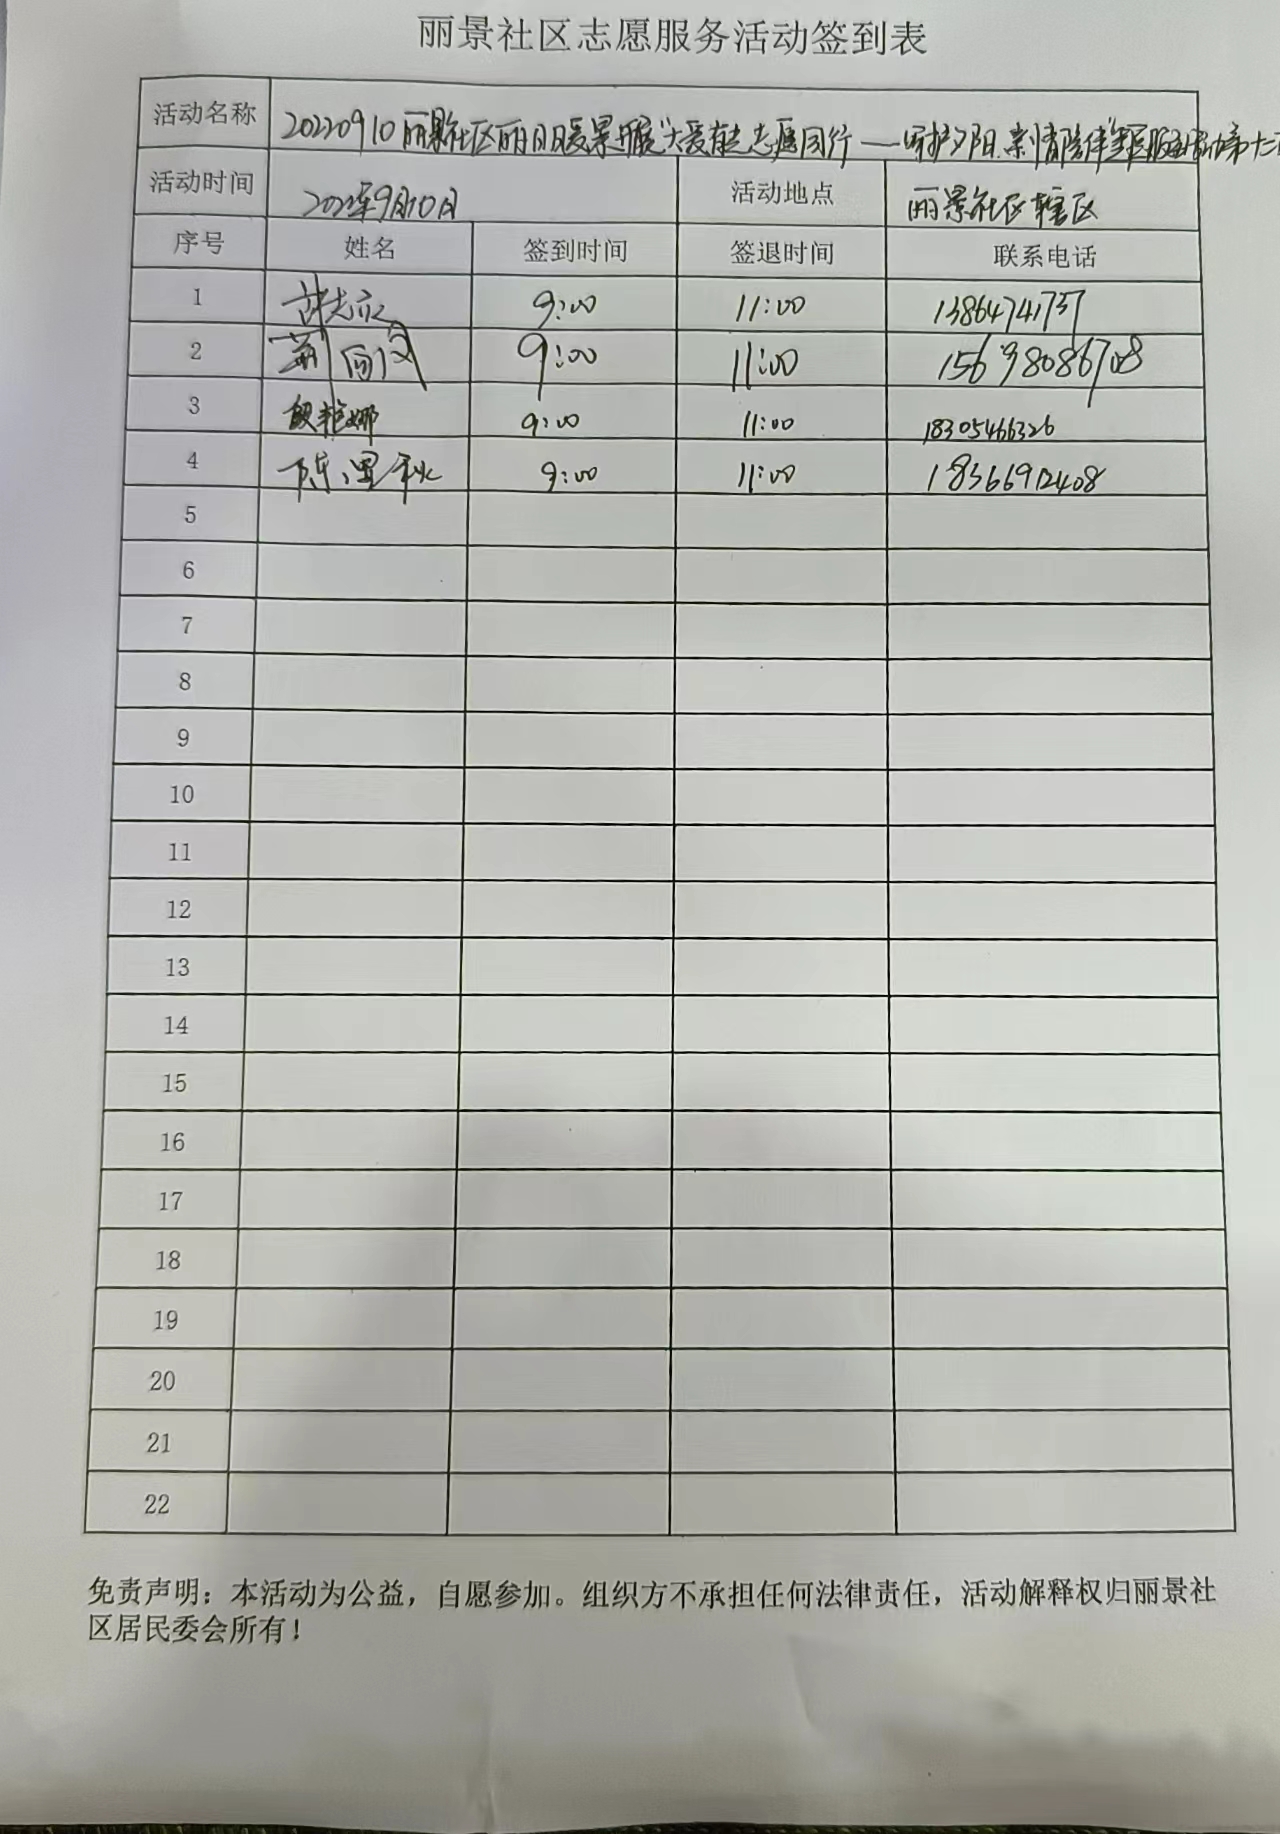 丽景社区志愿服务活动签到表
活动名称 20220910丽景社区丽日暖景开展"大爱有志愿同行——守护夕阳.亲情陪伴"志愿服务活动第十二
活动时间 2022年9月10日 活动地点 丽景社区辖区
序号 姓名 签到时间 签退时间 联系电话
1 9:00 11:00 13864741737
2 9:00 11:00 15698086708
3 段艳娜 9:00 11:00 18305466326
4 陈 秋 9:00 11:00 18366912408
5
6
7
8
9
10
11
12
13
14
15
16
17
18
19
20
21
22
免责声明：本活动为公益，自愿参加。组织方不承担任何法律责任，活动解释权归丽景社
区居民委会所有！